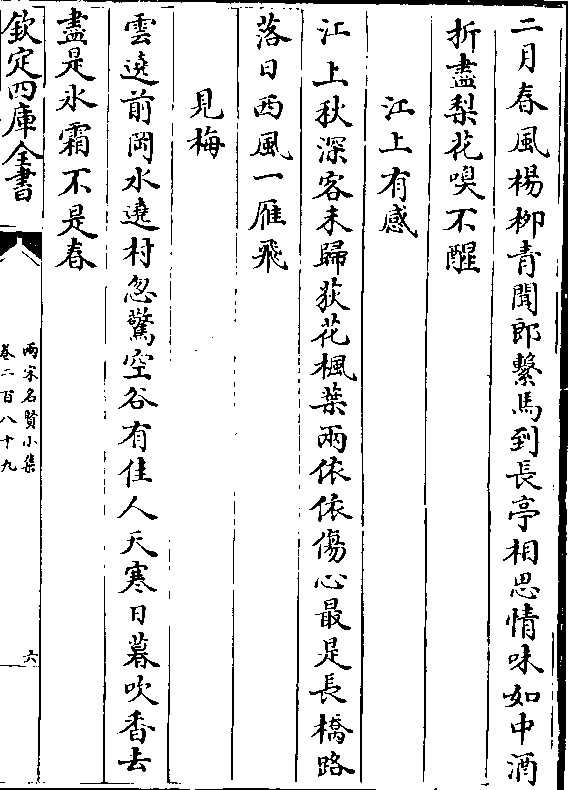 二月春風楊柳青聞郎繫馬到長亭相思情味如中酒
折盡梨花嗅不醒
江上有感
江上秋深客未歸荻花楓葉兩依依傷心最是長橋路
落日西風一雁飛
見梅
雲遶前岡水遶村忽驚空谷有佳人天寒日暮吹香去
盡是氷霜不是春
欽定四庫全書
兩宋名賢小集
卷二百八十九
六